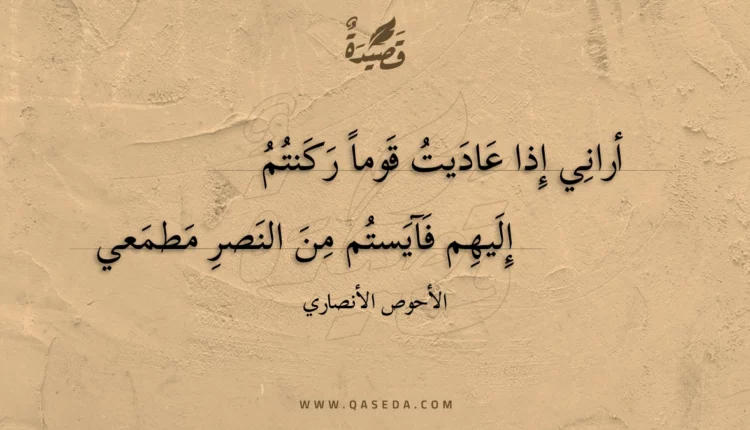 قَصِيْدَةٌ
أرانِي إِذا عَادَيتُ قَوماً رَكَنتُمُ
إِلَيهِم فَآيَستُم مِنَ النَصرِ مَطمَعي
الأحوص الأنصاري
WWW.QASEDA.COM